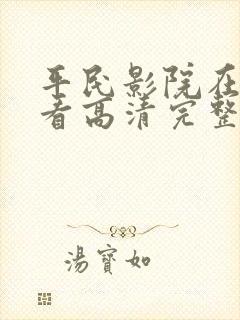 平民影院在
看高清完整
湯寶如